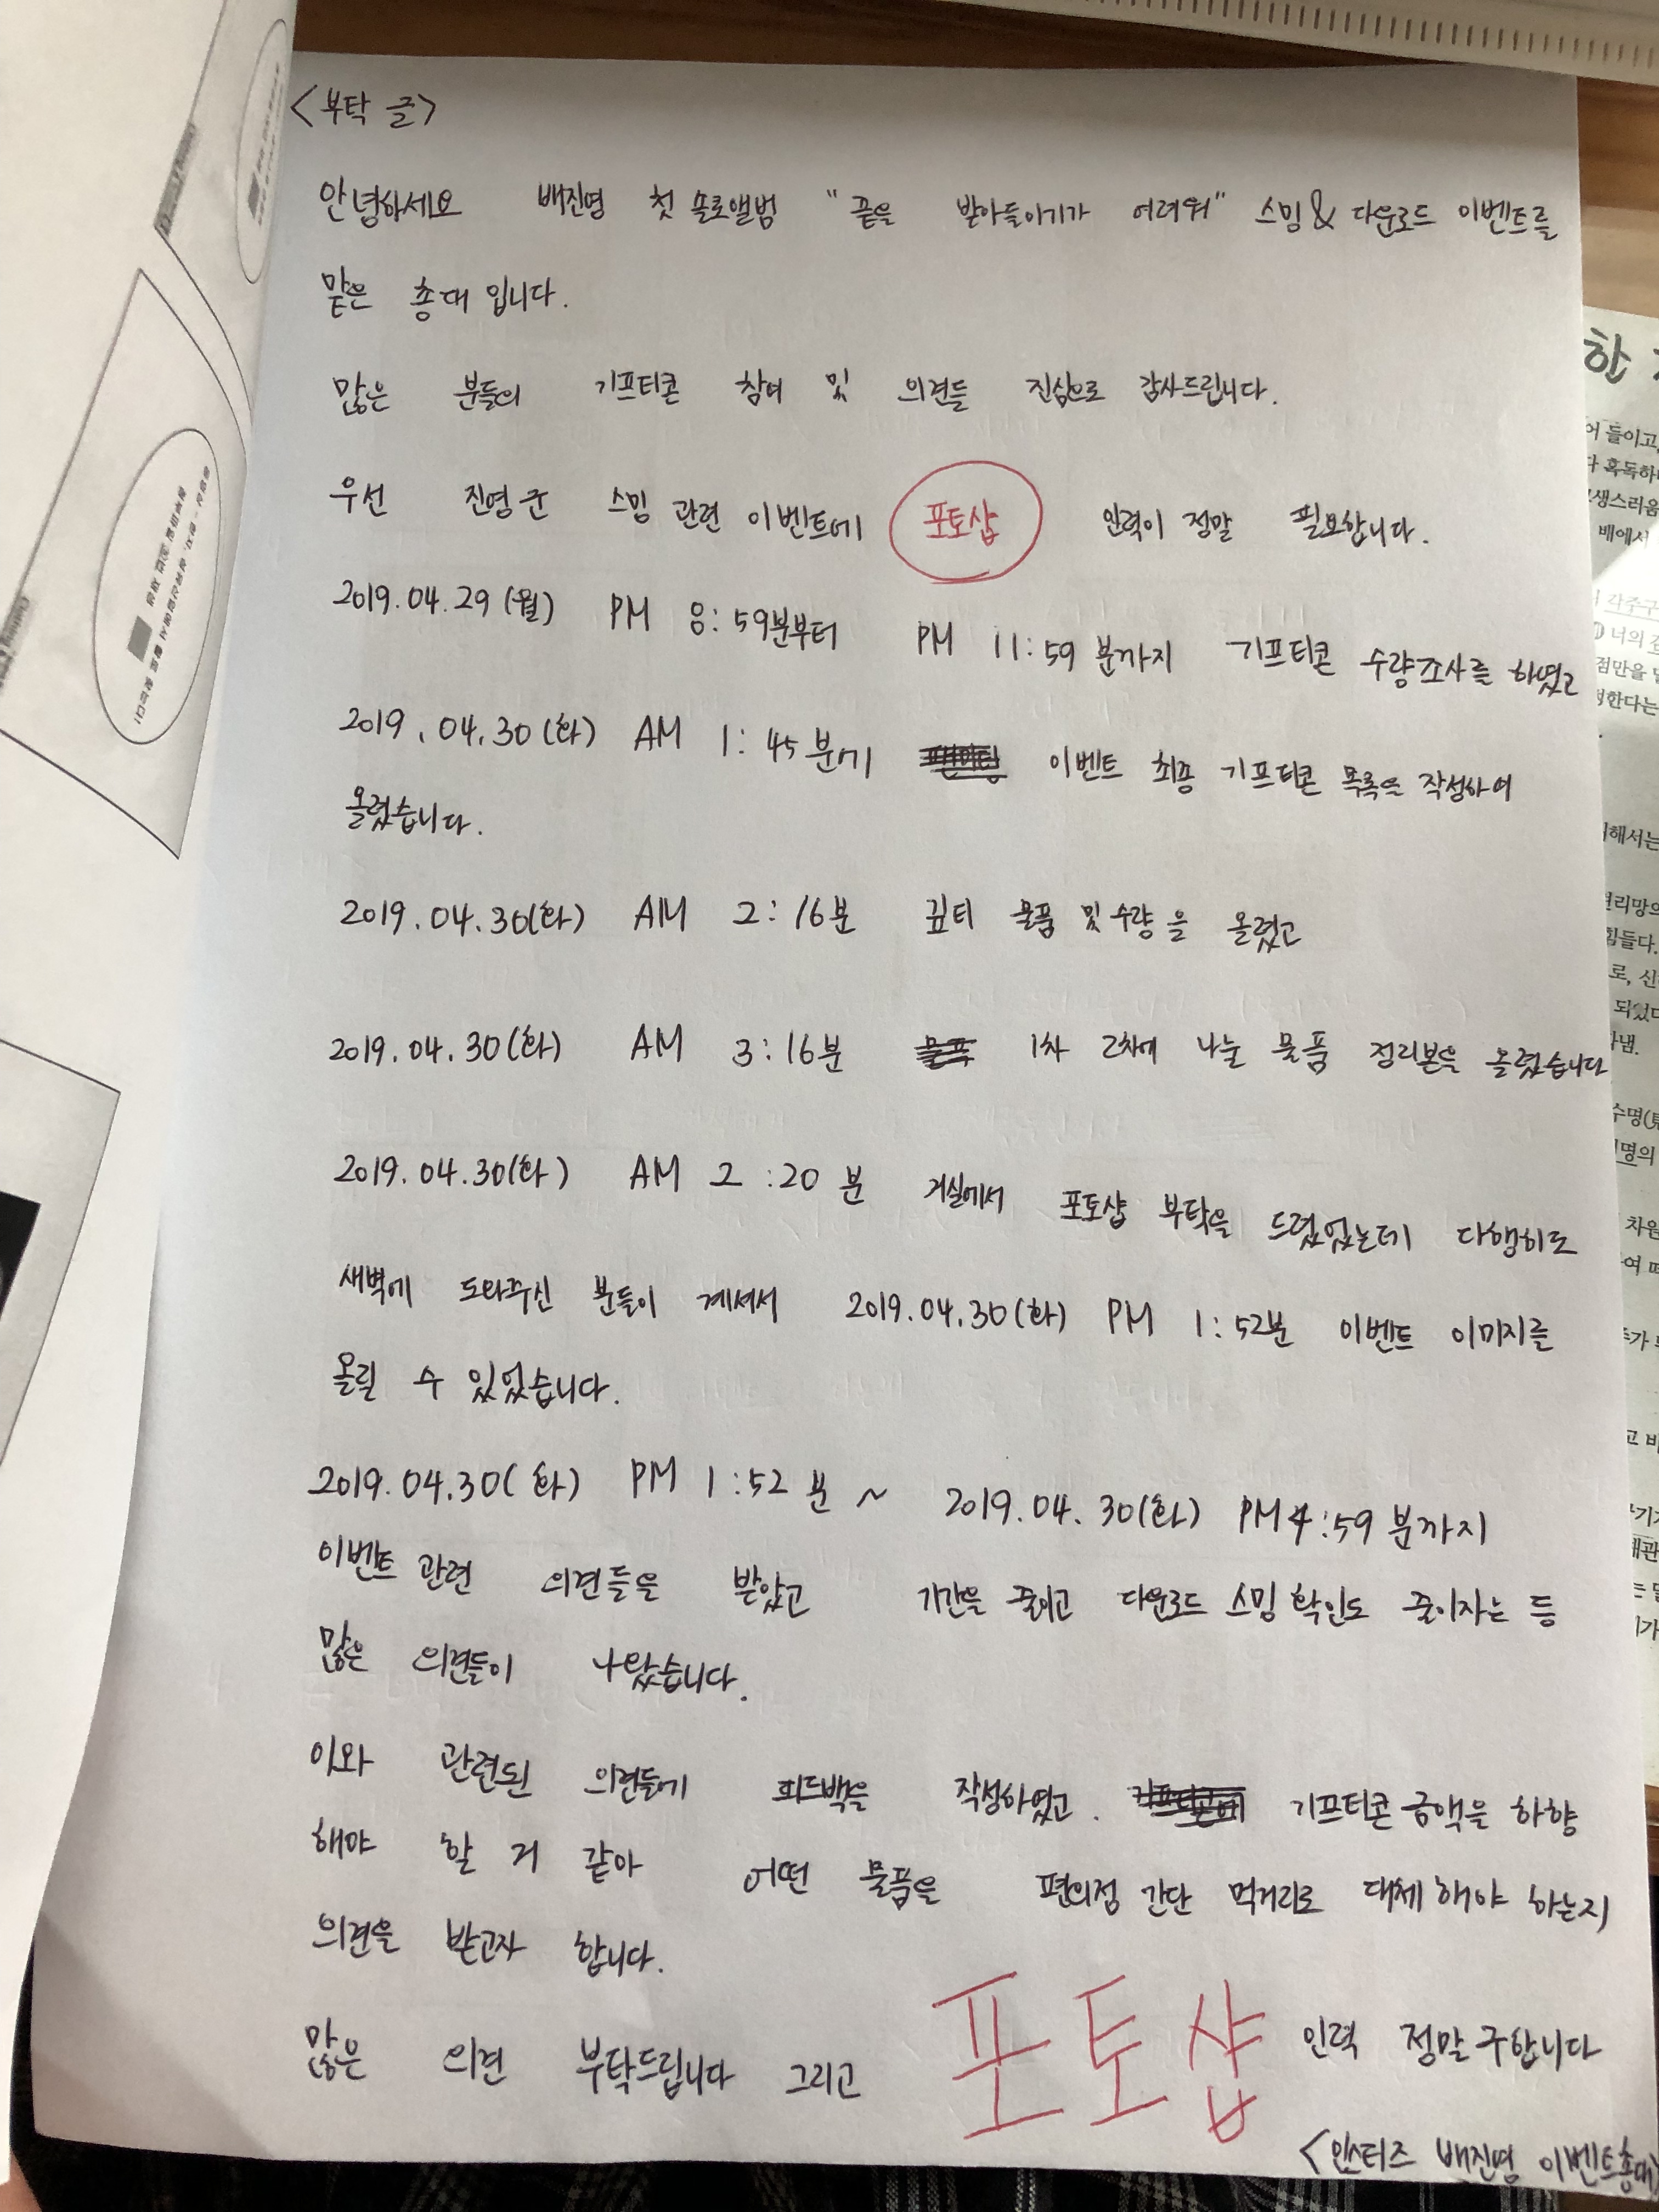 <부탁 글>
안녕하세요 배진영 첫 솔로앨범 "끝을 받아들이기가 어려워" 스밍 & 다운로드 이벤트를
맡은 총대 입니다.
많은 분들의 기프티콘 참여 및 의견들 진심으로 감사드립니다.
우선 진영군 스밍 관련 이벤트에 포토샵 인력이 정말 필요합니다.
2019.04.29(월) PM 8:59분부터 PM 11:59분까지 기프티콘 수량조사를 하였고
2019.04.30(화) AM 1:45분에 이벤트 최종 기프티콘 목록을 작성하여
올렸습니다.
2019.04.30(화) AM 2:16분 깊티 물품 및 수량을 올렸고
2019.04.30(화) AM 3:16분 물품 1차 2차에 나눌 물품 정리본을 올렸습니다
2019.04.30(화) AM 2:20분 거실에서 포토샵 부탁을 드렸었는데 다행히도
새벽에 도와주신 분들이 계셔서 2019.04.30(화) PM 1:52분 이벤트 이미지를
올릴 수 있었습니다.
2019.04.30(화) PM 1:52분 ~ 2019.04.30(화) PM 4:59분까지
이벤트 관련 의견들을 받았고 기간을 줄이고 다운로드 스밍 확인도 줄이자는 등
많은 의견들이 나왔습니다.
이와 관련된 의견들에 피드백을 작성하였고. 기프티콘 금액을 하향
해야 할 거 같아 어떤 물품을 편의점 간단 먹거리로 대체해야 하는지
의견을 받고자 합니다.
많은 의견 부탁드립니다 그리고 포토샵 인력 정말 구합니다
<인스티즈 배진영 이벤트총대>
한
어 들이고,
다 혹독하
생스러움
배에서
각주구
너의 
점만을
정한다는
해서는
힘들다.
로, 신
되었다
수명
명의
차원